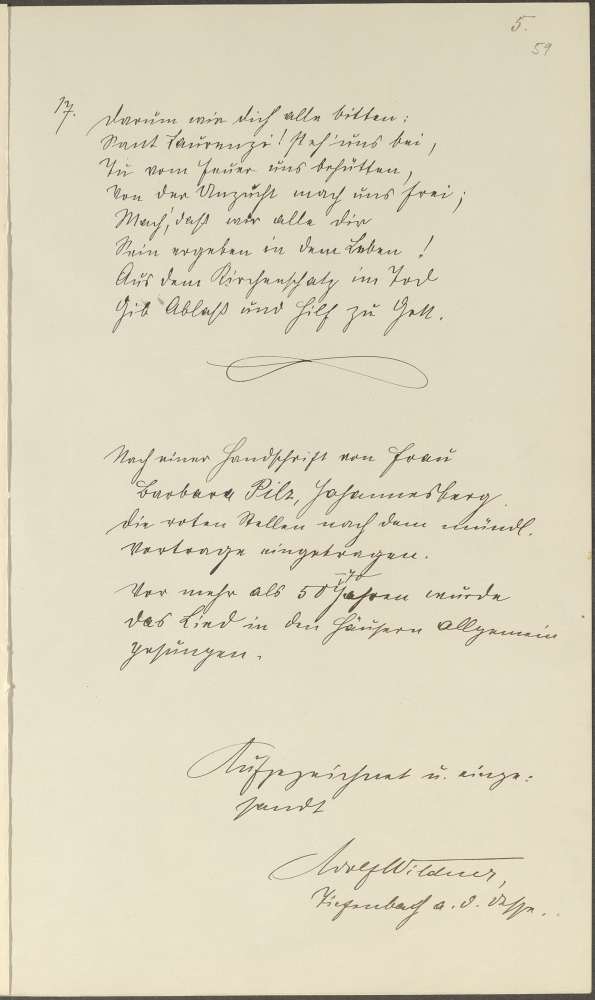 5.
59
17. Darum wir dich alle bitten:
Sant Laurenzi! steh' uns bei,
Tu vom Feuer uns behütten,
Von der Unzucht mach uns frei;
Mach', daß wir alle dir
Sein ergeben in dem Leben!
Aus dem Kirchenschatz im Tod
Gib Ablaß und hilf zu Gott.
Nach einer Handschrift von Frau
Barbara Pilz, Johannesberg.
Die roten Stellen nach dem mündl.
Vortrage eingetragen.
-70
Vor mehr als 50 Jahren wurde
das Lied in den Häusern allgemein
gesungen.
Aufgezeichnet u. einge-
sandt
Adolf Wildner,
Tiefenbach a. d. Desse.